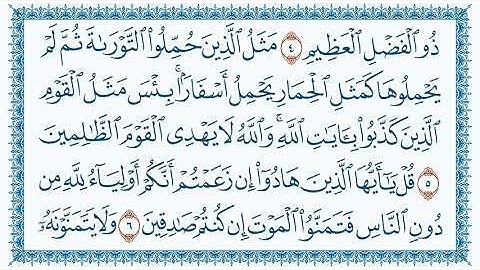 ذُو الْفَضْلِ الْعَظِيمِ ٤ مَثَلُ الَّذِينَ حُمِّلُوا التَّوْرَىٰةَ ثُمَّ لَمْ
يَحْمِلُوهَا كَمَثَلِ الْحِمَارِ يَحْمِلُ أَسْفَارًۢا ۚ بِئْسَ مَثَلُ الْقَوْمِ
الَّذِينَ كَذَّبُوا بِـَٔايَٰتِ اللَّهِ ۚ وَاللَّهُ لَا يَهْدِى الْقَوْمَ الظَّٰلِمِينَ
٥ قُلْ يَٰٓأَيُّهَا الَّذِينَ هَادُوٓا إِن زَعَمْتُمْ أَنَّكُمْ أَوْلِيَآءُ لِلَّهِ مِن
دُونِ النَّاسِ فَتَمَنَّوُا الْمَوْتَ إِن كُنتُمْ صَٰدِقِينَ ٦ وَلَا يَتَمَنَّوْنَهُۥٓ